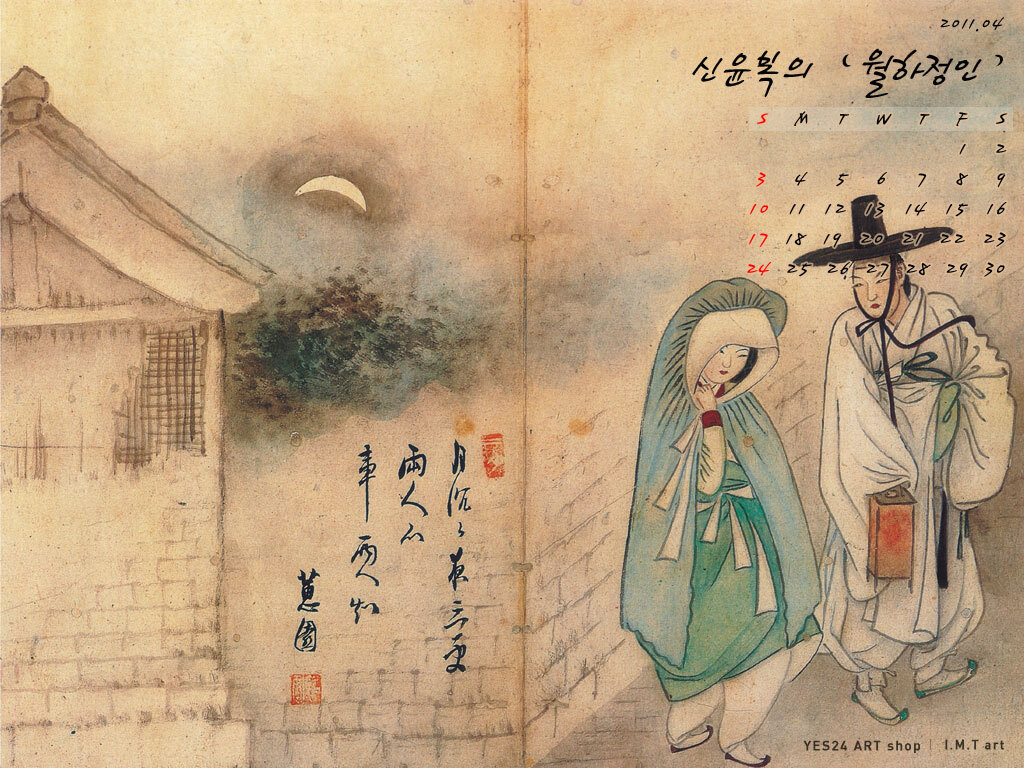 2011.04
신윤복의 '월하정인'
S M T W T F S
1 2
3 4 5 6 7 8 9
10 11 12 13 14 15 16
17 18 19 20 21 22 23
24 25 26 27 28 29 30
月沉〻夜三更
兩人心
事兩人知
蕙園
YES24 ART shop | I.M.T art